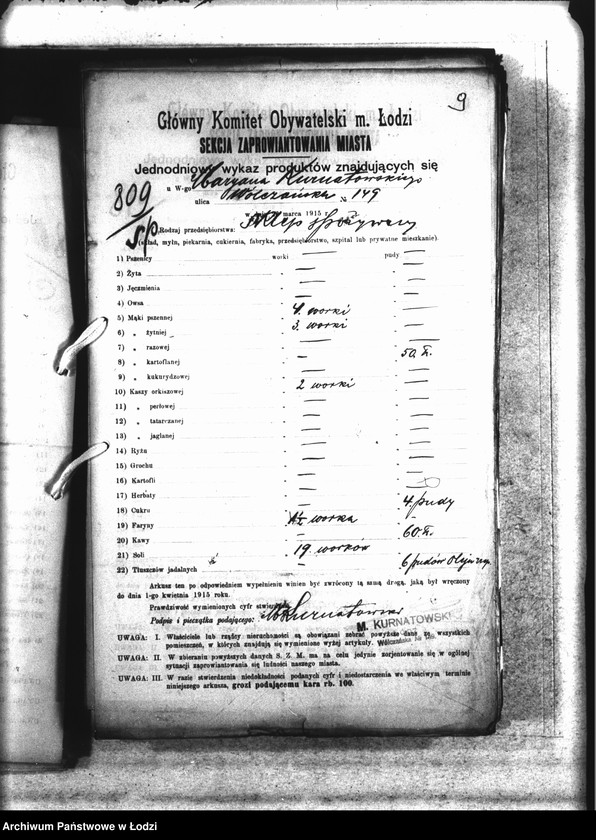 9
Główny Komitet Obywatelski m. Łodzi
SEKCJA ZAPROWIANTOWANIA MIASTA
Jednodniowy wykaz produktów znajdujących się
809
u W-go Maryana Kurnatowskiego
ulica Wólczańska № 149
marca 1915 r.
Sp.
Rodzaj przedsiębiorstwa: Sklep spożywczy
(skład, młyn, piekarnia, cukiernia, fabryka, przedsiębiorstwo, szpital lub prywatne mieszkanie).
1) Pszenicy worki — pudy —
2) Żyta — —
3) Jęczmienia — —
4) Owsa — —
5) Mąki pszennej 4. worki —
6) „ żytniej 3. worki —
7) „ razowej — —
8) „ kartoflanej — 50. f.
9) „ kukurydzowej — —
10) Kaszy orkiszowej 2 worki —
11) „ perłowej — —
12) „ tatarczanej — —
13) „ jaglanej — —
14) Ryżu — —
15) Grochu — —
16) Kartofli — —
17) Herbaty —
18) Cukru — 4. pudy
19) Faryny worka —
20) Kawy — 60. f.
21) Soli 19. worków —
22) Tłuszczów jadalnych — 6 pudów
Arkusz ten po odpowiedniem wypełnieniu winien być zwrócony tą samą drogą, jaką był wręczony
do dnia 1-go kwietnia 1915 roku.
Prawdziwość wymienionych cyfr
Podpis i pieczątka podającego: M. Kurnatowski
M. KURNATOWSKI
UWAGA: I. Właściciele lub rządcy nieruchomości są obowiązani zebrać powyższe dane ze wszystkich
pomieszczeń, w których znajdują się wymienione wyżej artykuły.
UWAGA: II. W zbieraniu powyższych danych S. Z. M. ma na celu jedynie zorjentowanie się w ogólnej
sytuacji zaprowiantowania się ludności naszego miasta.
UWAGA: III. W razie stwierdzenia niedokładności podanych cyfr i niedostarczenia we właściwym terminie
niniejszego arkusza, grozi podającemu kara rb. 100.
Archiwum Państwowe w Łodzi